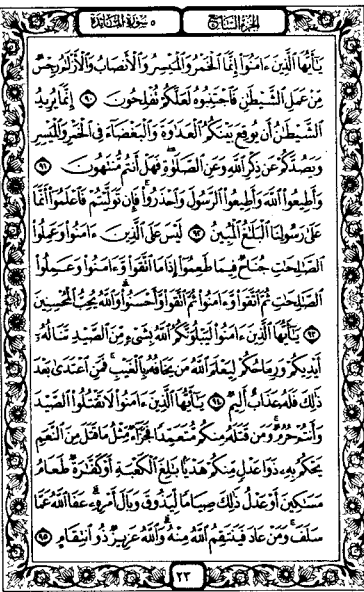 الجزء السابع
٥ سورة المائدة
يَٰٓأَيُّهَا ٱلَّذِينَ ءَامَنُوٓا۟ إِنَّمَا ٱلْخَمْرُ وَٱلْمَيْسِرُ وَٱلْأَنصَابُ وَٱلْأَزْلَٰمُ رِجْسٌ
مِّنْ عَمَلِ ٱلشَّيْطَٰنِ فَٱجْتَنِبُوهُ لَعَلَّكُمْ تُفْلِحُونَ ٩٠ إِنَّمَا يُرِيدُ
ٱلشَّيْطَٰنُ أَن يُوقِعَ بَيْنَكُمُ ٱلْعَدَٰوَةَ وَٱلْبَغْضَآءَ فِى ٱلْخَمْرِ وَٱلْمَيْسِرِ
وَيَصُدَّكُمْ عَن ذِكْرِ ٱللَّهِ وَعَنِ ٱلصَّلَوٰةِ ۖ فَهَلْ أَنتُم مُّنتَهُونَ ٩١
وَأَطِيعُوا۟ ٱللَّهَ وَأَطِيعُوا۟ ٱلرَّسُولَ وَٱحْذَرُوا۟ ۚ فَإِن تَوَلَّيْتُمْ فَٱعْلَمُوٓا۟ أَنَّمَا
عَلَىٰ رَسُولِنَا ٱلْبَلَٰغُ ٱلْمُبِينُ ٩٢ لَيْسَ عَلَى ٱلَّذِينَ ءَامَنُوا۟ وَعَمِلُوا۟
ٱلصَّٰلِحَٰتِ جُنَاحٌ فِيمَا طَعِمُوٓا۟ إِذَا مَا ٱتَّقَوا۟ وَّءَامَنُوا۟ وَعَمِلُوا۟
ٱلصَّٰلِحَٰتِ ثُمَّ ٱتَّقَوا۟ وَّءَامَنُوا۟ ثُمَّ ٱتَّقَوا۟ وَّأَحْسَنُوا۟ ۗ وَٱللَّهُ يُحِبُّ ٱلْمُحْسِنِينَ
٩٣ يَٰٓأَيُّهَا ٱلَّذِينَ ءَامَنُوا۟ لَيَبْلُوَنَّكُمُ ٱللَّهُ بِشَىْءٍ مِّنَ ٱلصَّيْدِ تَنَالُهُۥٓ
أَيْدِيكُمْ وَرِمَاحُكُمْ لِيَعْلَمَ ٱللَّهُ مَن يَخَافُهُۥ بِٱلْغَيْبِ ۚ فَمَنِ ٱعْتَدَىٰ بَعْدَ
ذَٰلِكَ فَلَهُۥ عَذَابٌ أَلِيمٌ ٩٤ يَٰٓأَيُّهَا ٱلَّذِينَ ءَامَنُوا۟ لَا تَقْتُلُوا۟ ٱلصَّيْدَ
وَأَنتُمْ حُرُمٌ ۚ وَمَن قَتَلَهُۥ مِنكُم مُّتَعَمِّدًا فَجَزَآءٌ مِّثْلُ مَا قَتَلَ مِنَ ٱلنَّعَمِ
يَحْكُمُ بِهِۦ ذَوَا عَدْلٍ مِّنكُمْ هَدْيًۢا بَٰلِغَ ٱلْكَعْبَةِ أَوْ كَفَّٰرَةٌ طَعَامُ
مَسَٰكِينَ أَوْ عَدْلُ ذَٰلِكَ صِيَامًا لِّيَذُوقَ وَبَالَ أَمْرِهِۦ ۗ عَفَا ٱللَّهُ عَمَّا
سَلَفَ ۚ وَمَنْ عَادَ فَيَنتَقِمُ ٱللَّهُ مِنْهُ ۗ وَٱللَّهُ عَزِيزٌ ذُو ٱنتِقَامٍ ٩٥
٢٣